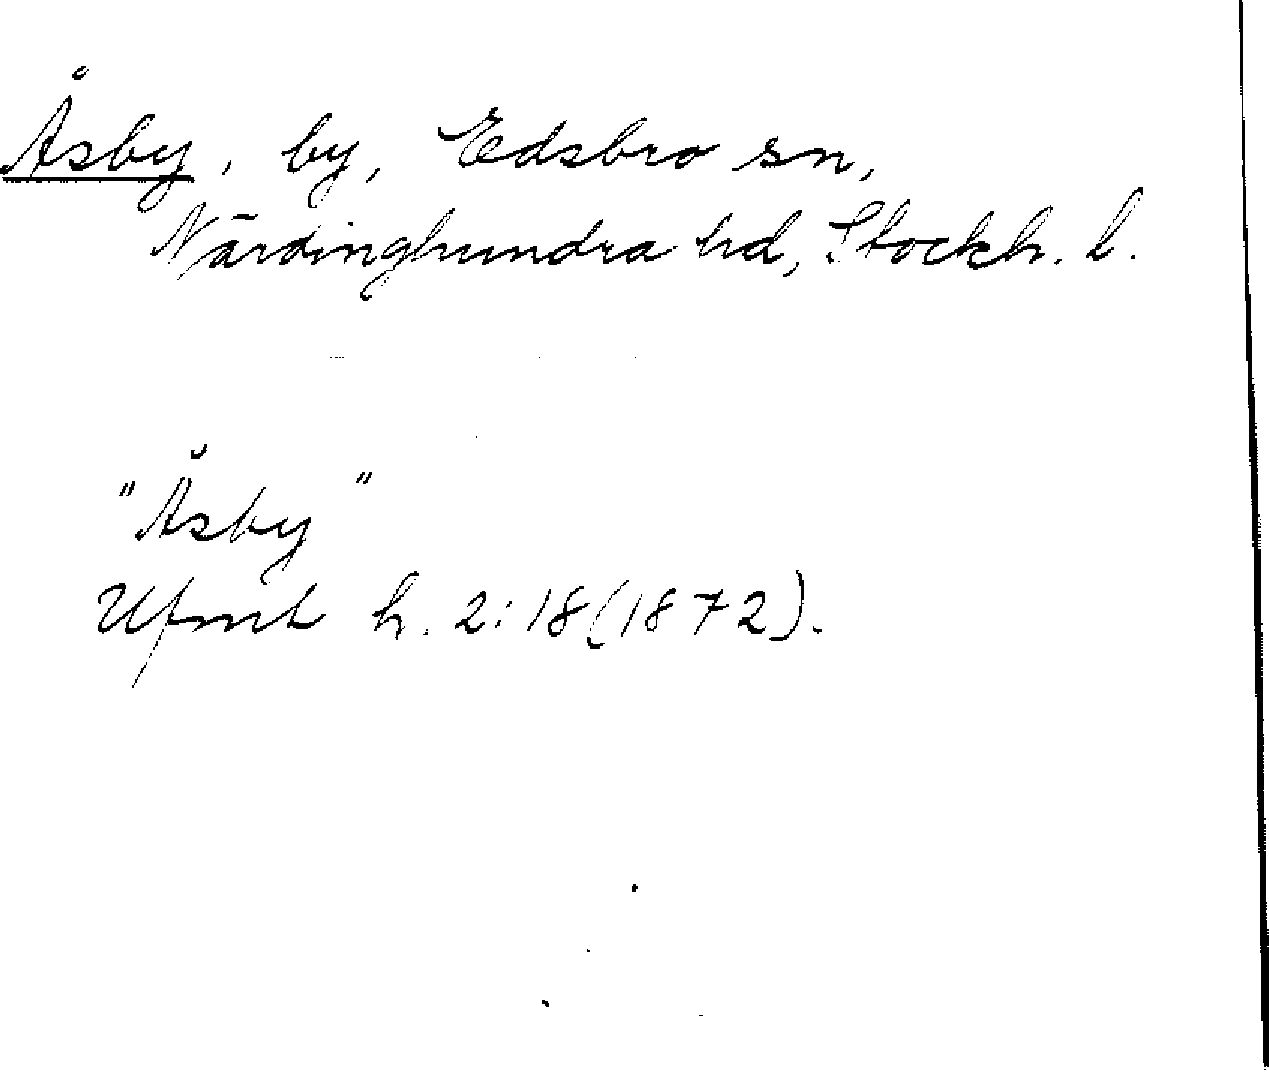 Åsby, by, Edsbro sn,
Närdinghundra hd, Stockh. l.
"Åsby"
Ufmt h. 2:18(1872).